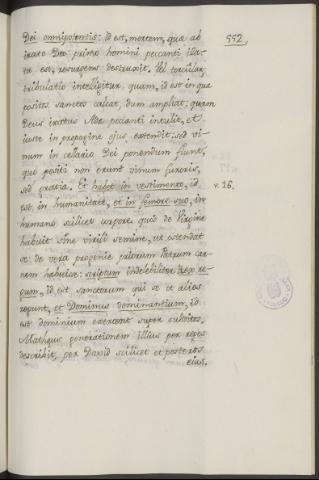 Dei omnipotentis: id est, mortem, qua ab
irato Deo primo homini peccanti illa-
ta est, resurgens destruxit. Vel torcular,
tribulatio intelligitur, quam, id est in qua
positos sanctos calcat, dum ampliat: quam
Deus iratus Adæ peccanti intulit, et
iuste in propagine ejus extendit, sed vi-
num in cellario Dei ponendum fiunt,
qui positi non erunt vinum furoris,
sed gratia. Et habet in vestimento, id
est in humanitate, et in femore suo, in
humano scilicet corpore quod de Virgine
habuit sine virili semine, ut ostendat
se de vera progenie priorum Patrum car-
nem habuisse: scriptum indelebiliter Rex re-
gum, id est sanctorum qui se et alios
regunt, et Dominus dominantium, id
est dominium exercent super subditos.
Mathæus generationem illius per reges
describit, per David scilicet et posteros
eius.
552
v. 16.